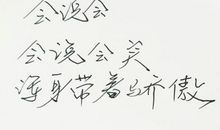 会说会
会说会笑
浑身带着骄傲